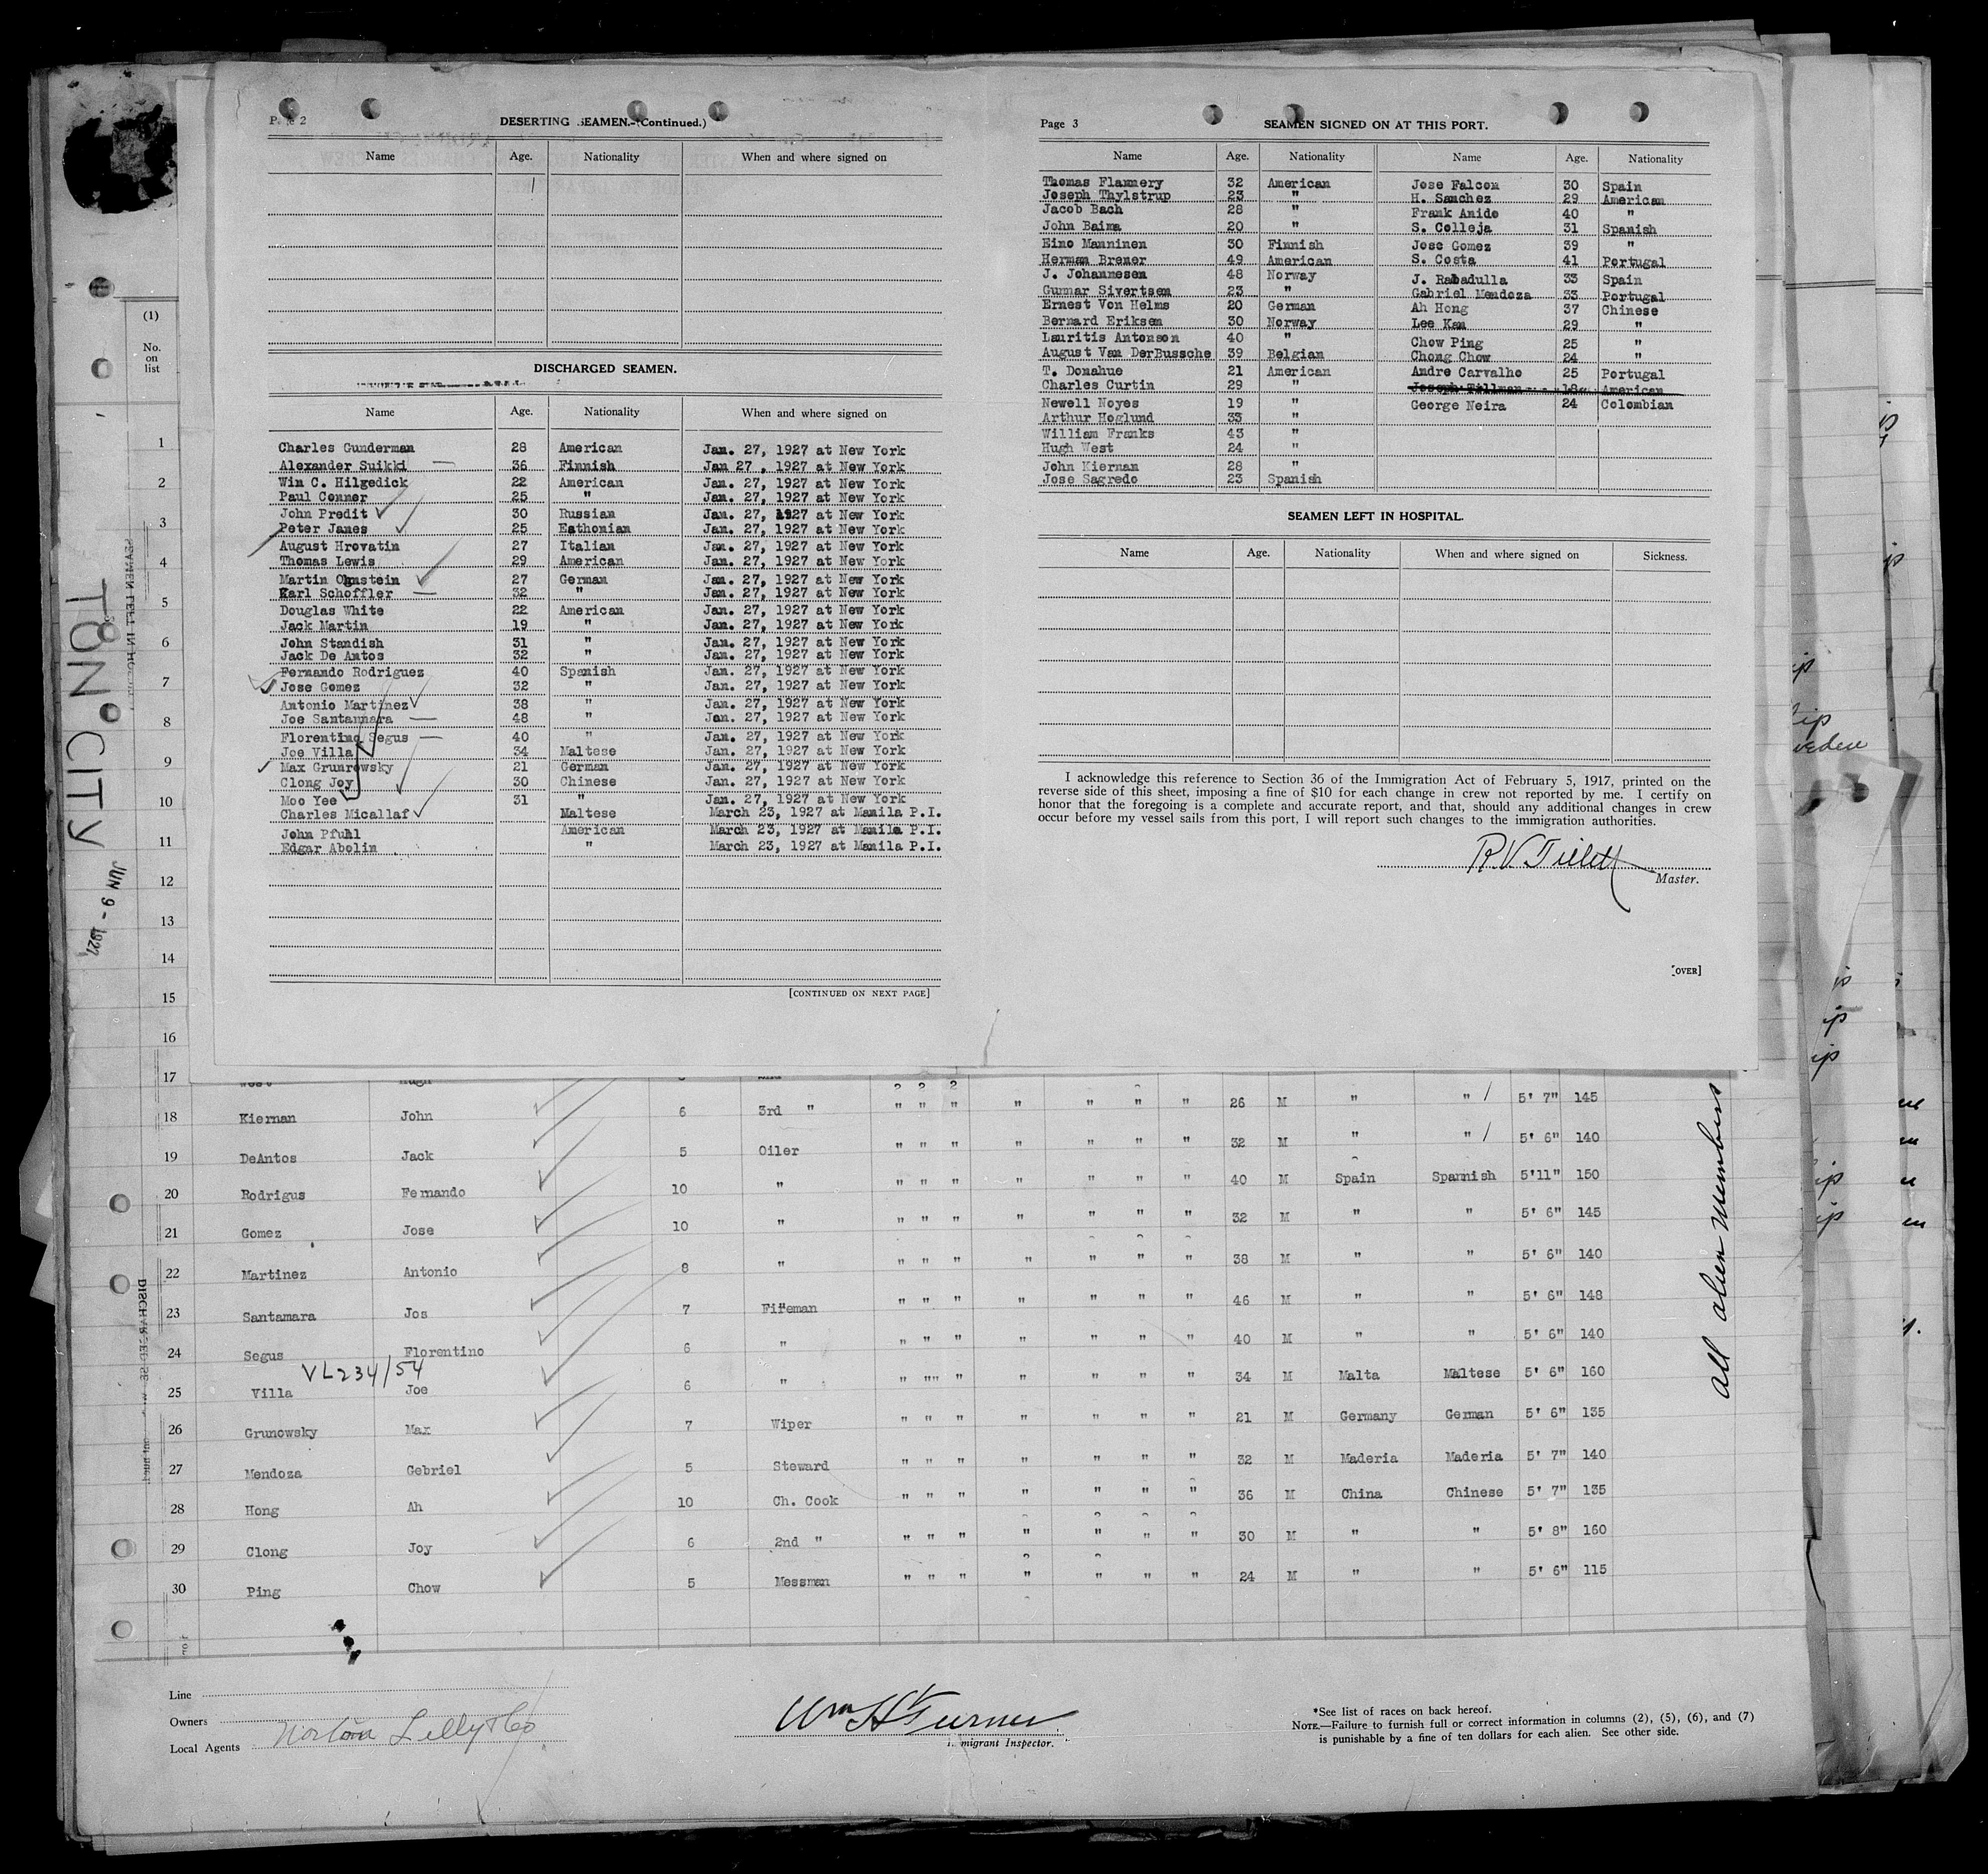 Page 2
DESERTING SEAMEN.-(Continued.)
Name Age. Nationality When and where signed on
DISCHARGED SEAMEN.
Name Age. Nationality When and where signed on
Charles Gunderman 28 American Jan. 27, 1927 at New York
Alexander Suikki — 36 Finnish Jan 27 , 1927 at New York
Win C. Hilgedick 22 American Jan. 27, 1927 at New York
Paul Conner 25 " Jan. 27, 1927 at New York
John Predit 30 Russian Jan. 27, 1927 at New York
Peter Janes 25 Esthonian Jan. 27, 1927 at New York
August Hrovatin 27 Italian Jan. 27, 1927 at New York
Thomas Lewis 29 American Jan. 27, 1927 at New York
Martin Ohnstein 27 German Jan. 27, 1927 at New York
Karl Schoffler — 32 " Jan. 27, 1927 at New York
Douglas White 22 American Jan. 27, 1927 at New York
Jack Martin 19 " Jan. 27, 1927 at New York
John Standish 31 " Jan. 27, 1927 at New York
Jack De Antos 32 " Jan. 27, 1927 at New York
Fernando Rodriguez 40 Spanish Jan. 27, 1927 at New York
Jose Gomez 32 " Jan. 27, 1927 at New York
Antonio Martinez 38 " Jan. 27, 1927 at New York
Joe Santammara — 48 " Jan. 27, 1927 at New York
Florentino Segus — 40 " Jan. 27, 1927 at New York
Joe Villa 34 Maltese Jan. 27, 1927 at New York
Max Grunrowsky 21 German Jan. 27, 1927 at New York
Clong Joy 30 Chinese Jan. 27, 1927 at New York
Moo Yee 31 " Jan. 27, 1927 at New York
Charles Micallaf Maltese March 23, 1927 at Manila P.I.
John Pfuhl American March 23, 1927 at Manila P.I.
Edgar Abolin " March 23, 1927 at Manila P.I.
[CONTINUED ON NEXT PAGE]
Page 3
SEAMEN SIGNED ON AT THIS PORT.
Name Age. Nationality Name Age. Nationality
Thomas Flannery 32 American Jose Falcon 30 Spain
Joseph Thylstrup 23 " H. Sanchez 29 American
Jacob Bach 28 " Frank Anido 40 "
John Baima 20 " S. Colleja 31 Spanish
Eino Manninen 30 Finnish Jose Gomez 39 "
Herman Bremer 49 American S. Costa 41 Portugal
J. Johannesen 48 Norway J. Rabadulla 33 Spain
Gunnar Sivertsen 23 " Gabriel Mendoza 33 Portugal
Ernest Von Helms 20 German Ah Hong 37 Chinese
Bernard Eriksen 30 Norway Lee Kan 29 "
Lauritis Antonson 40 " Chow Ping 25 "
August Van DerBussche 39 Belgian Chong Chow 24 "
T. Donahue 21 American Andre Carvalho 25 Portugal
Charles Curtin 29 " Joseph Tillman 18 American
Newell Noyes 19 " George Neira 24 Colombian
Arthur Hoglund 33 "
William Franks 43 "
Hugh West 24 "
John Kiernan 28 "
Jose Sagredo 23 Spanish
SEAMEN LEFT IN HOSPITAL.
Name Age. Nationality When and where signed on Sickness.
I acknowledge this reference to Section 36 of the Immigration Act of February 5, 1917, printed on the
reverse side of this sheet, imposing a fine of $10 for each change in crew not reported by me. I certify on
honor that the foregoing is a complete and accurate report, and that, should any additional changes in crew
occur before my vessel sails from this port, I will report such changes to the immigration authorities.
R V Tillett
Master.
[OVER]
(1)
No.
on
list
1
2
3
4
5
6
7
8
9
10
11
12
13
14
15
16
TON CITY
JUN 9 - 1927
17 West Hugh
18 Kiernan John 6 3rd " " " " " " " " 26 M " " / 5' 7" 145
19 DeAntos Jack 5 Oiler " " " " " " " 32 M " " / 5' 6" 140
20 Rodrigus Fernando 10 " " " " " " " " 40 M Spain Spannish 5'11" 150
21 Gomez Jose 10 " " " " " " " " 32 M " " 5' 6" 145
22 Martinez Antonio 8 " " " " " " " " 38 M " " 5' 6" 140
23 Santamara Jos 7 Fireman " " " " " " " 46 M " " 5' 6" 148
24 Segus Florentino 6 " " " " " " " " 40 M " " 5' 6" 140
VL234/54
25 Villa Joe 6 " " "" " " " " " 34 M Malta Maltese 5' 6" 160
26 Grunowsky Max 7 Wiper " " " " " " " 21 M Germany German 5' 6" 135
27 Mendoza Gebriel 5 Steward " " " " " " " 32 M Maderia Maderia 5' 7" 140
28 Hong Ah 10 Ch. Cook " " " " " " " 36 M China Chinese 5' 7" 135
29 Clong Joy 6 2nd " " " " " " " " 30 M " " 5' 8" 160
30 Ping Chow 5 Messman " " " " " " " 24 M " " 5' 6" 115
All alien members
Line
Owners
Local Agents Norton Lilly & Co
Wm H Turner
Immigrant Inspector.
*See list of races on back hereof.
NOTE.—Failure to furnish full or correct information in columns (2), (5), (6), and (7)
is punishable by a fine of ten dollars for each alien. See other side.